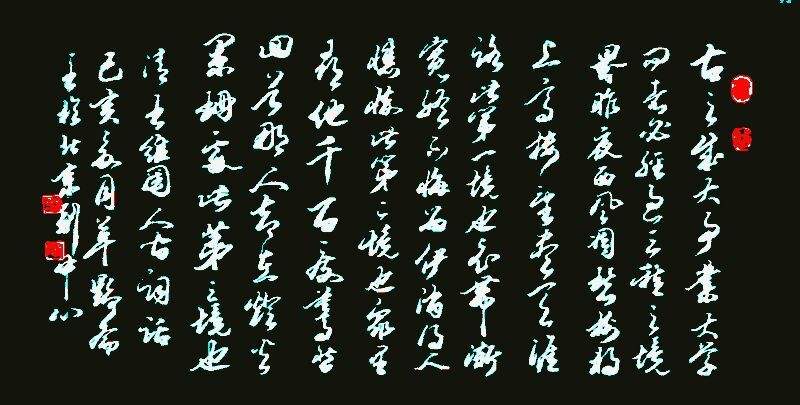 古之成大事業大学
问者必經過三種之境
界昨夜西风凋碧樹獨
上高樓望盡天涯
路此第一境也衣帶漸
寬終不悔为伊消得人
憔悴此第二境也衆里
尋他千百度驀然
回首那人却在燈火
阑珊處此第三境也
清王維國人间詞話
己亥月
主於北京